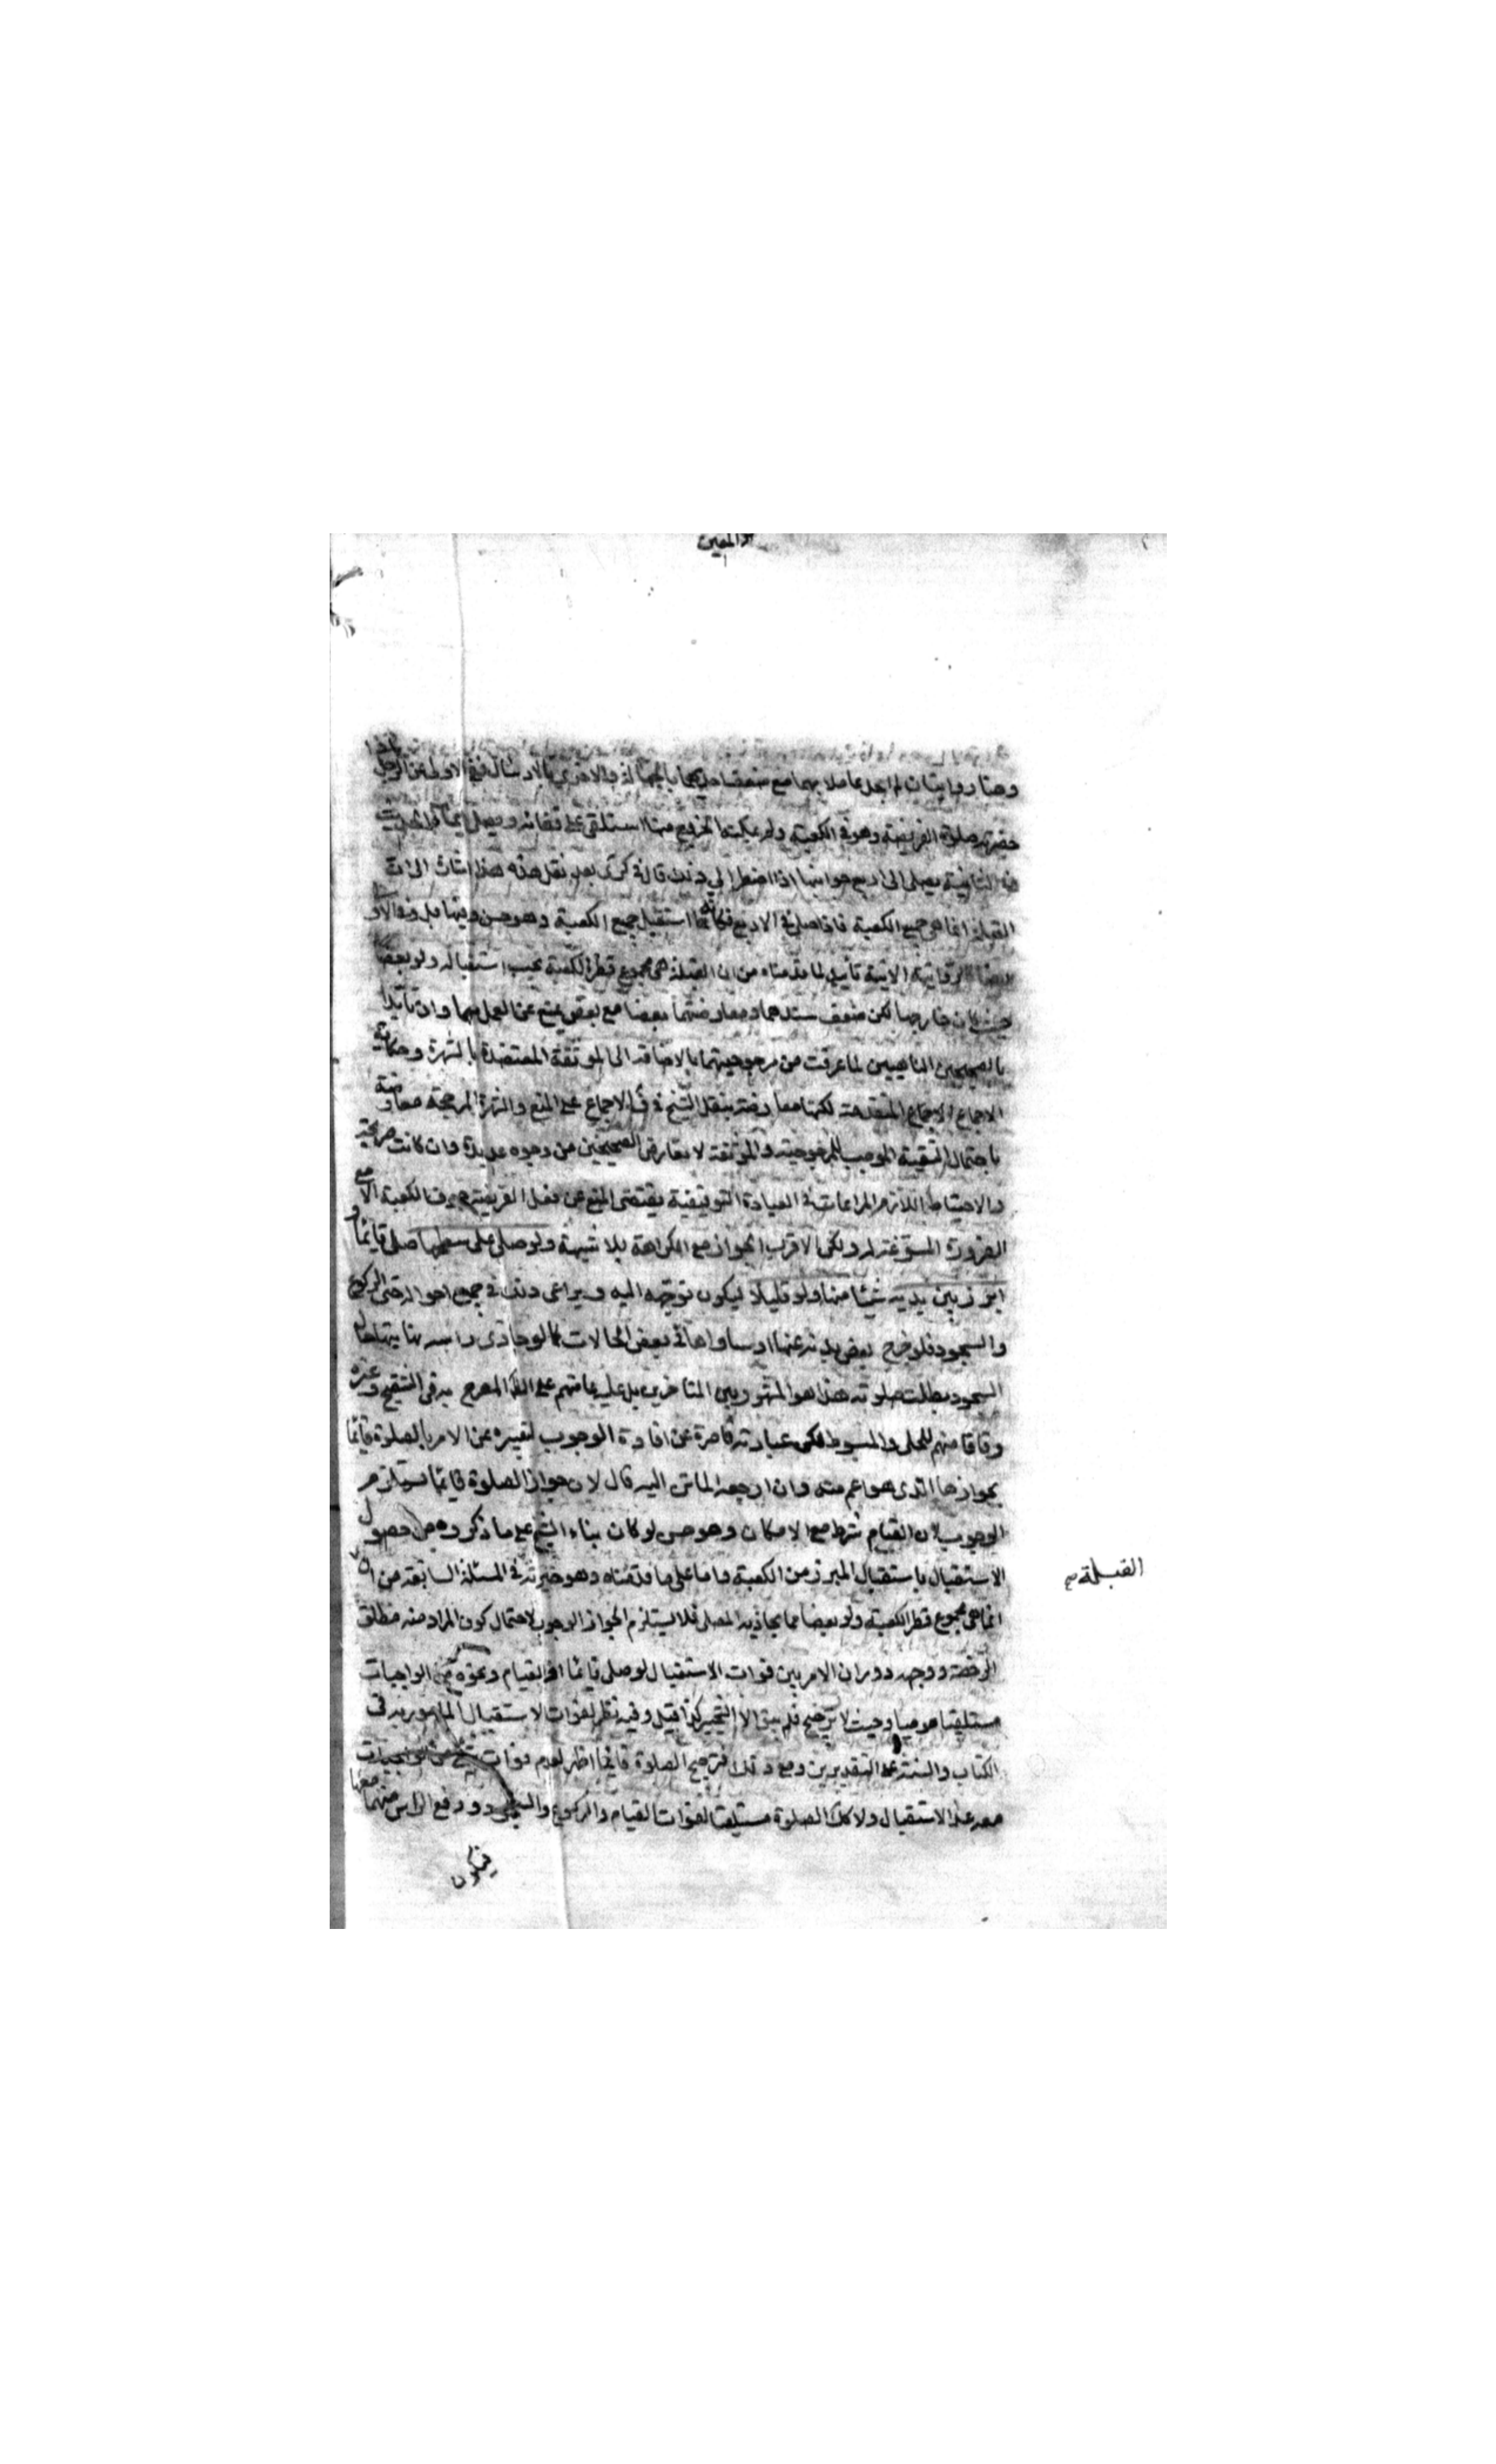 وهنا روايتان لم اجد عاملا بهما مع ضعف احديهما بالجهالة والاخرى بالارسال ففي الاولى عن الرجل اذا
حضرته صلوة الفريضة وهو في الكعبة ولم يمكنه الخروج منها استلقى على قفاه ويصلي ايماء
الثانية يصلى الى اربع جوانبها اذا اضطر الى ذلك قال في كرى بعد نقل هذه هذا اشارة الى ان
القبلة انما هي جميع الكعبة فاذا صلى في الاربع فكانما استقبل جميع الكعبة وهو حسن وفيها بل
الرواية الاتية تاييد لما قدمناه من ان القبلة هي مجموع قطر الكعبة يجب استقباله ولو بعضا
خارجها لكن ضعف سندهما ومعارضتهما بعضا مع بعض يمنع عن العمل بهما وان تايدا
بالصحيحين الناهيين لما عرفت من مرجوحيتهما بالاضافة الى الموثقة المعتضدة بالشهرة وحكاية
الاجماع المتقدمة لكنها معارضة بنقل الشيخ في ف الاجماع على المنع والشهرة المرجحة معارضة
باحتمال التقية الموجب للمرجوحية والموثقة لا تعارض الصحيحين من وجوه عديدة وان كانت صريحة
والاحتياط اللازم المراعات في العبادة التوقيفية يقتضى المنع عن فعل الفريضة جوف الكعبة الا مع
الضرورة المسوغة له ولكن الاقرب الجواز مع الكراهة بلا شبهة ولو صلى على سطحها صلى قائما و
ابرز بين يديه شيئا منها ولو قليلا ليكون توجهه اليه ويراعى ذلك في جميع احواله حتى الركوع
والسجود فلو خرج بعض بدنه عنها او ساواها في بعض الحالات كما لو حاذى راسه نهايتها حال
السجود بطلت صلوته هذا هو المشهور بين المتاخرين بل عليه عامتهم على الظ المصرح به في التنقيح وغيره
وفاقا منهم للحلى والمبسوط لكن عبارته قاصرة عن افادة الوجوب لتعبيره عن الامر بالصلوة قائما
بجوازها الذى هو اعم منه وان ارجعه الماتن اليه قال لان جواز الصلوة قائما يستلزم
الوجوب لان القيام شرط مع الامكان وهو حسن لو كان بناء الشيخ على ما ذكروه من حصول
الاستقبال باستقبال المبرز من الكعبة واما على ما قدمناه وهو خيرته في المسئلة السابقة من ان
القبلة صح
انما هي مجموع قطر الكعبة ولو بعضا مما يحاذيه المصلى فلا يستلزم الجواز الوجوب لاحتمال كون المراد منه مطلق
الرخصة ووجهه دوران الامر بين فوات الاستقبال لو صلى قائما او القيام ونحوه من الواجبات
مستلقيا موميا وحيث لا ترجيح فلم يبق الا التخيير كذا قيل وفيه نظر لفوات الاستقبال المامور به في
الكتاب والسنة على التقديرين ومع ذلك فترجيح الصلوة قائما اظهر لعدم فوات شئ من الواجبات
معه عدا الاستقبال ولا كك الصلوة مستلقيا لفوات القيام والركوع والسجود ورفع الراس منهما معها
فيكون